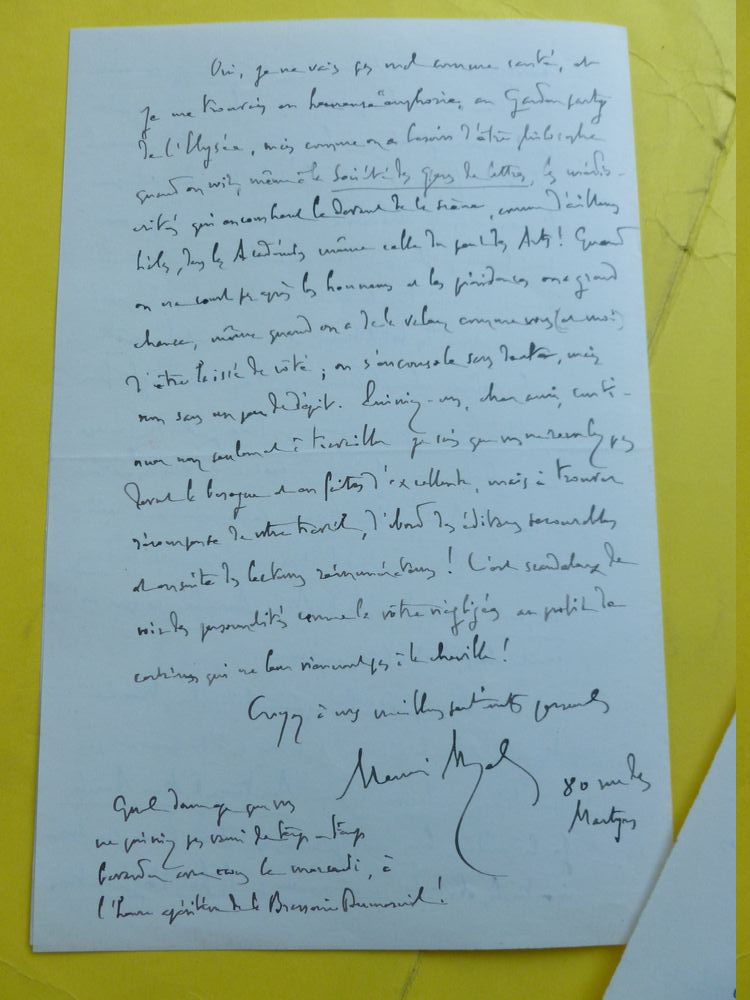 Oui, je ne vais pas mal comme santé, et
je me trouvais en heureuse euphorie, au Garden party
de l'Elysée, mais comme on a besoin d'être philosophe
quand on voit, même à la Société des Gens de lettres, les médio-
crités qui encombrent le devant de la scène, comme d'ailleurs
hélas, dans les Académies même celle du pont des Arts! Quand
on ne court pas après les honneurs et les présidences on a grand
chance, même quand on a de la valeur comme vous (et moi)
d'être laissé de côté; on s'en console sans doute, mais
non sans un peu de dépit. Puissiez-vous, cher ami, conti-
nuer non seulement à travailler je sais que vous ne reculez pas
devant la besogne et en faites d'excellente, mais à trouver
récompense de votre travail, d'abord des éditeurs secourables
et ensuite des lecteurs rémunérateurs! C'est scandaleux de
voir des personnalités comme la vôtre négligées au profit de
certaines qui ne leur viennent pas à la cheville!
Croyez à mes meilleurs sentiments personnels
Henri
80 rue des
Martyrs
Quel dommage que vous
ne puissiez pas venir de temps en temps
bavarder avec nous le mercredi, à
l'heure apéritive de la Brasserie Dumesnil!